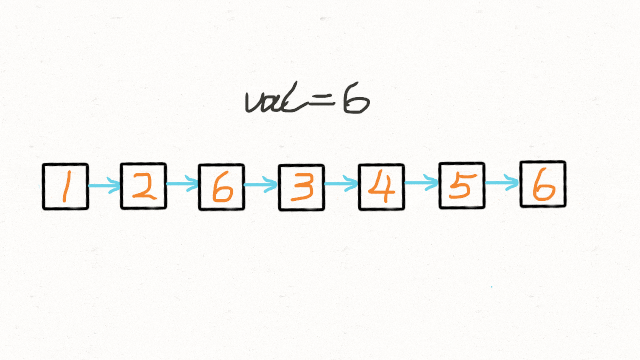 val=6
1 2 6 3 4 5 6